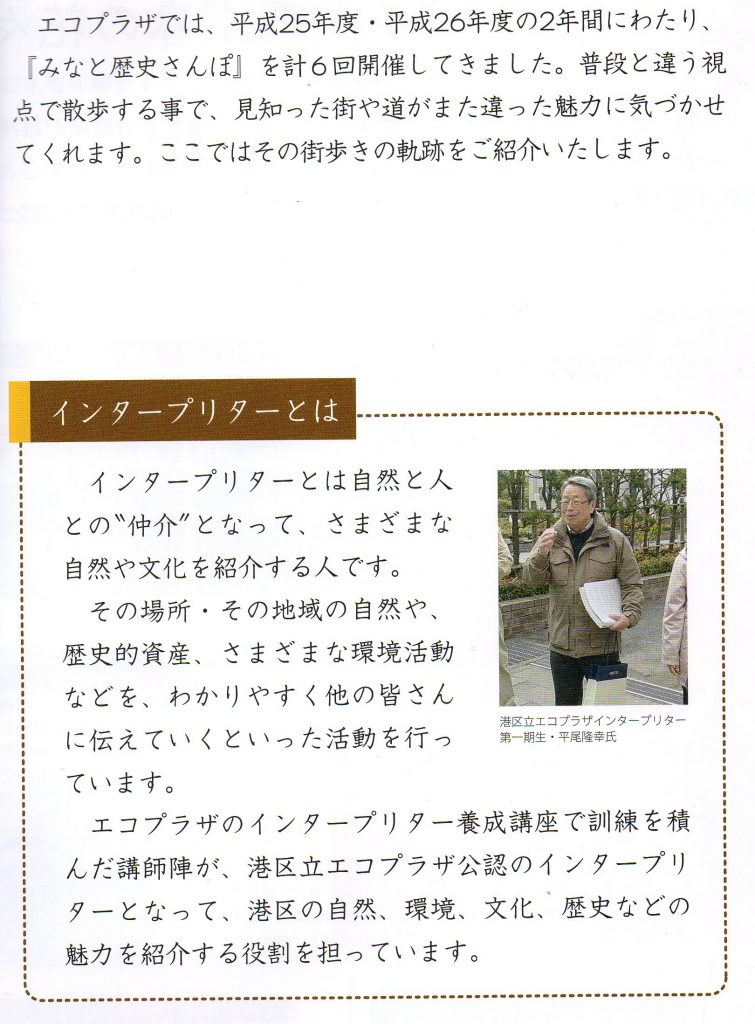 エコプラザでは、平成25年度・平成26年度の2年間にわたり、
『みなと歴史さんぽ』を計６回開催してきました。普段と違う視
点で散歩する事で、見知った街や道がまた違った魅力に気づかせ
てくれます。ここではその街歩きの軌跡をご紹介いたします。
インタープリターとは
インタープリターとは自然と人
との〝仲介〟となって、さまざまな
自然や文化を紹介する人です。
その場所・その地域の自然や、
歴史的資産、さまざまな環境活動
などを、わかりやすく他の皆さん
に伝えていくといった活動を行っ
ています。
港区立エコプラザインタープリター
第一期生・平尾隆幸氏
エコプラザのインタープリター養成講座で訓練を積
んだ講師陣が、港区立エコプラザ公認のインタープリ
ターとなって、港区の自然、環境、文化、歴史などの
魅力を紹介する役割を担っています。